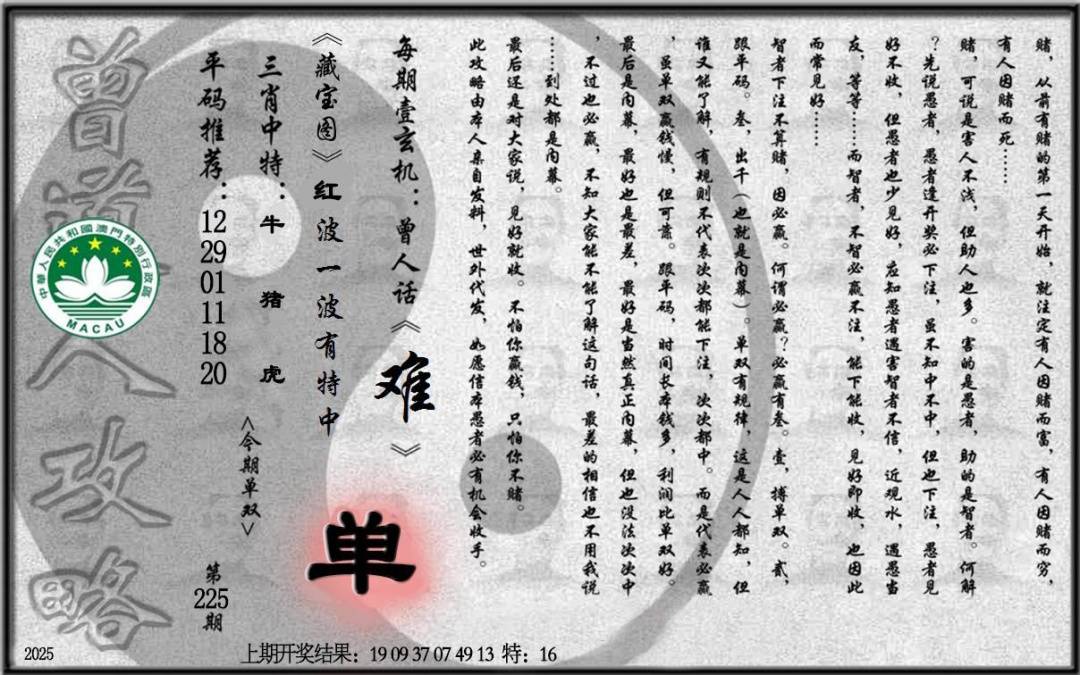 赌，从前有赌的第一天开始，就注定有人因赌而富，有人因赌而穷，
有人因赌而死……
赌，可说是害人不浅，但助人也多。害的是愚者，助的是智者。何解
？先说愚者，愚者逢开奖必下注，虽不知中不中，但也下注，愚者见
好不收，但愚者也少见好，应知愚者遇害智者不信，近观水，遇愚当
友，等等……而智者，不智必赢不注，能下能收，见好即收，也因此
而常见好……
智者下注不算赌，因必赢。何谓必赢？必赢有叁。壹，搏单双。贰，
跟单码。叁，出千（也就是内幕）。单双有规律，这是人人都知，但
谁又能了解，有规则不代表次次都能下注，次次都中。而是代表必赢
，虽单双赢钱慢，但可靠。跟单码，时间长本钱多，利润比单双好。
最后是内幕，最好也是最差，最好是当然真正内幕，但也没法次次中
，不过也必赢，不知大家能不能了解这句话，最差的相信也不用我说
……到处都是内幕。
最后还是对大家说，见好就收。不怕你赢钱，只怕你不赌。
此攻略由本人亲自发料，世外代发，如愿信本愚者必有机会收手。
每期壹玄机：曾人话《难》
《藏宝图》红波一波有特中
单
三肖中特：牛 猪 虎
<今期单双>
平码推荐：12 29 01 11 18 20
第225期
曾道人攻略
中華人民共和國澳門特別行政區
MACAU
2025
上期开奖结果：19 09 37 07 49 13 特：16